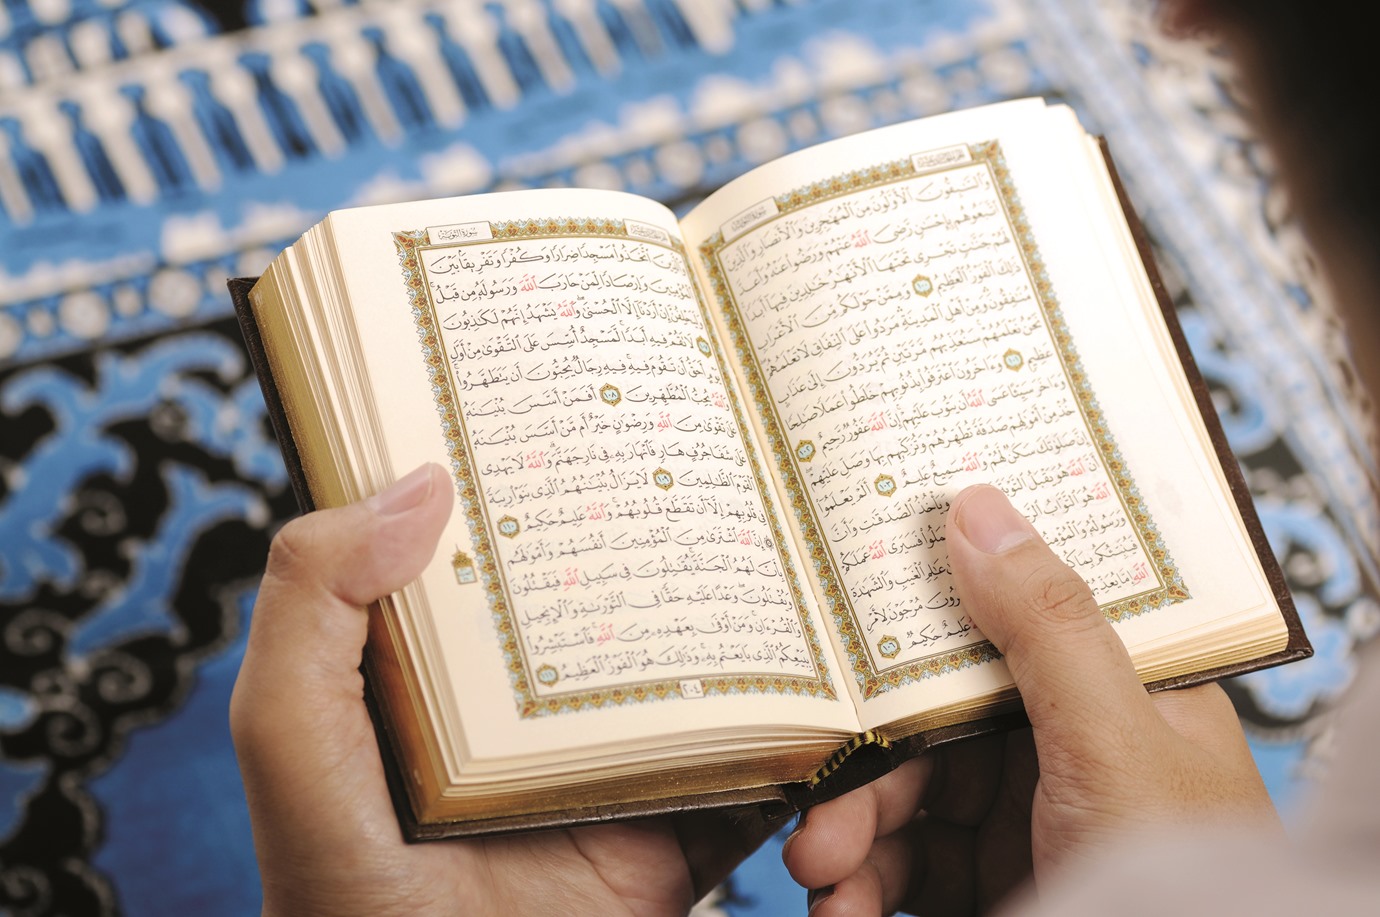 الجزء الحادي عشر
سورة التوبة
وَٱلسَّٰبِقُونَ ٱلْأَوَّلُونَ مِنَ ٱلْمُهَٰجِرِينَ وَٱلْأَنصَارِ وَٱلَّذِينَ
ٱتَّبَعُوهُم بِإِحْسَٰنٍ رَّضِىَ ٱللَّهُ عَنْهُمْ وَرَضُوا۟ عَنْهُ وَأَعَدَّ
لَهُمْ جَنَّٰتٍ تَجْرِى تَحْتَهَا ٱلْأَنْهَٰرُ خَٰلِدِينَ فِيهَآ أَبَدًا
ذَٰلِكَ ٱلْفَوْزُ ٱلْعَظِيمُ ١٠٠ وَمِمَّنْ حَوْلَكُم مِّنَ ٱلْأَعْرَابِ
مُنَٰفِقُونَ وَمِنْ أَهْلِ ٱلْمَدِينَةِ مَرَدُوا۟ عَلَى ٱلنِّفَاقِ لَا تَعْلَمُهُمْ
نَحْنُ نَعْلَمُهُمْ سَنُعَذِّبُهُم مَّرَّتَيْنِ ثُمَّ يُرَدُّونَ إِلَىٰ عَذَابٍ
عَظِيمٍ ١٠١ وَءَاخَرُونَ ٱعْتَرَفُوا۟ بِذُنُوبِهِمْ خَلَطُوا۟ عَمَلًا صَٰلِحًا
وَءَاخَرَ سَيِّئًا عَسَى ٱللَّهُ أَن يَتُوبَ عَلَيْهِمْ إِنَّ ٱللَّهَ غَفُورٌ رَّحِيمٌ ١٠٢
خُذْ مِنْ أَمْوَٰلِهِمْ صَدَقَةً تُطَهِّرُهُمْ وَتُزَكِّيهِم بِهَا وَصَلِّ عَلَيْهِمْ
إِنَّ صَلَوٰتَكَ سَكَنٌ لَّهُمْ وَٱللَّهُ سَمِيعٌ عَلِيمٌ ١٠٣ أَلَمْ يَعْلَمُوٓا۟
أَنَّ ٱللَّهَ هُوَ يَقْبَلُ ٱلتَّوْبَةَ وَيَأْخُذُ ٱلصَّدَقَٰتِ وَأَنَّ
ٱللَّهَ هُوَ ٱلتَّوَّابُ فَسَيَرَى ٱللَّهُ عَمَلَكُمْ
وَرَسُولُهُۥ وَٱلْمُؤْمِنُونَ عَٰلِمِ ٱلْغَيْبِ وَٱلشَّهَٰدَةِ
فَيُنَبِّئُكُم بِمَا مُرْجَوْنَ لِأَمْرِ
ٱللَّهِ إِمَّا يُعَذِّبُهُمْ عَلِيمٌ حَكِيمٌ ١٠٦
سورة التوبة
وَٱلَّذِينَ ٱتَّخَذُوا۟ مَسْجِدًا ضِرَارًا وَكُفْرًا وَتَفْرِيقًۢا بَيْنَ
ٱلْمُؤْمِنِينَ وَإِرْصَادًا لِّمَنْ حَارَبَ ٱللَّهَ وَرَسُولَهُۥ مِن قَبْلُ
إِنْ أَرَدْنَآ إِلَّا ٱلْحُسْنَىٰ وَٱللَّهُ يَشْهَدُ إِنَّهُمْ لَكَٰذِبُونَ
لَا تَقُمْ فِيهِ أَبَدًا لَّمَسْجِدٌ أُسِّسَ عَلَى ٱلتَّقْوَىٰ مِنْ أَوَّلِ
أَحَقُّ أَن تَقُومَ فِيهِ فِيهِ رِجَالٌ يُحِبُّونَ أَن يَتَطَهَّرُوا۟
وَٱللَّهُ يُحِبُّ ٱلْمُطَّهِّرِينَ ١٠٨ أَفَمَنْ أَسَّسَ بُنْيَٰنَهُۥ
عَلَىٰ تَقْوَىٰ مِنَ ٱللَّهِ وَرِضْوَٰنٍ خَيْرٌ أَم مَّنْ أَسَّسَ بُنْيَٰنَهُۥ
عَلَىٰ شَفَا جُرُفٍ هَارٍ فَٱنْهَارَ بِهِۦ فِى نَارِ جَهَنَّمَ وَٱللَّهُ لَا يَهْدِى
ٱلْقَوْمَ ٱلظَّٰلِمِينَ ١٠٩ لَا يَزَالُ بُنْيَٰنُهُمُ ٱلَّذِى بَنَوْا۟ رِيبَةً
فِى قُلُوبِهِمْ إِلَّآ أَن تَقَطَّعَ قُلُوبُهُمْ وَٱللَّهُ عَلِيمٌ حَكِيمٌ ١١٠
إِنَّ ٱللَّهَ ٱشْتَرَىٰ مِنَ ٱلْمُؤْمِنِينَ أَنفُسَهُمْ وَأَمْوَٰلَهُم
بِأَنَّ لَهُمُ ٱلْجَنَّةَ يُقَٰتِلُونَ فِى سَبِيلِ ٱللَّهِ فَيَقْتُلُونَ
وَيُقْتَلُونَ وَعْدًا عَلَيْهِ حَقًّا فِى ٱلتَّوْرَىٰةِ وَٱلْإِنجِيلِ
وَٱلْقُرْءَانِ وَمَنْ أَوْفَىٰ بِعَهْدِهِۦ مِنَ ٱللَّهِ فَٱسْتَبْشِرُوا۟
بِبَيْعِكُمُ ٱلَّذِى بَايَعْتُم بِهِۦ وَذَٰلِكَ هُوَ ٱلْفَوْزُ ٱلْعَظِيمُ ١١١
٢٠٤